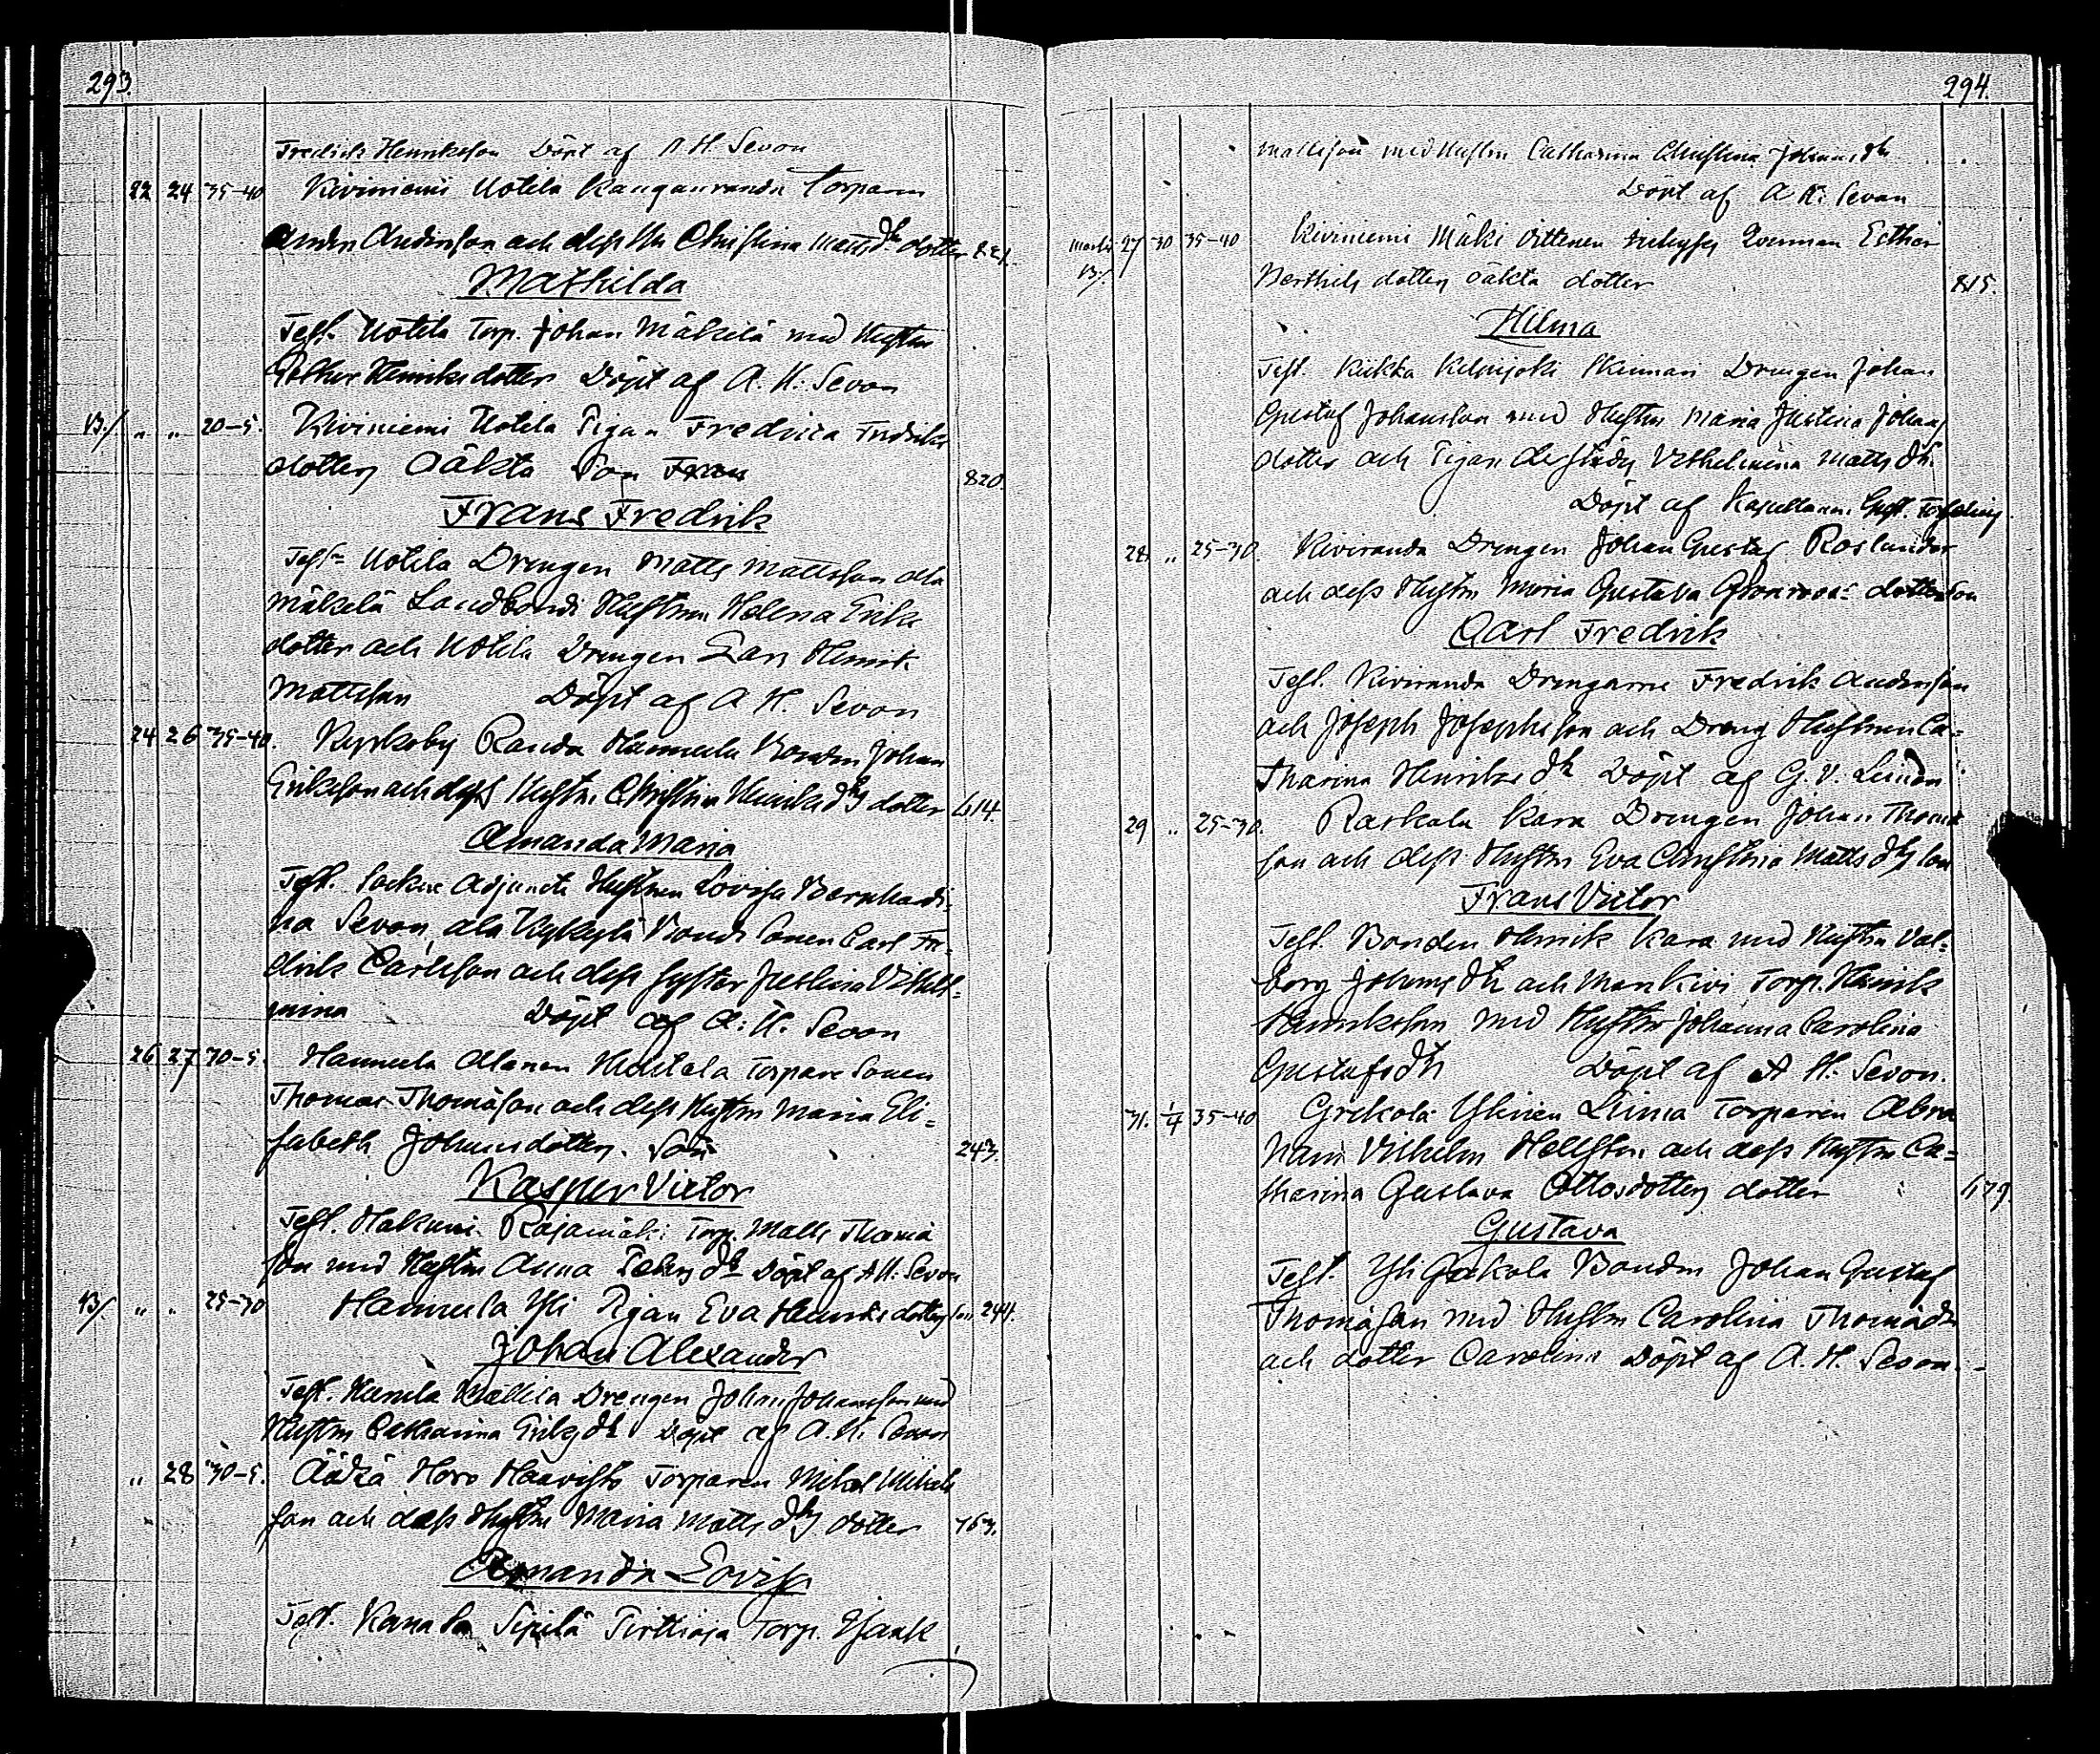 293.
Fredrik Henriksson Döpt af A H. Sevon
22 24 35-40 Kiviniemi Uotila Kanganranda Torparen
Anders Andersson och dess Hu Christina Matts dr dotter 821.
Mathilda
Test. Uotila Torp. Johan Mäkelä med Hustru
Esther Henriksdotter Döpt af A. H. Sevon
B./ " " 20-5. Kiviniemi Uotila Pigan Fredrica Fredriks
dotters Oäkta Son 820.
Frans Fredrik
Test. Uotila Drengen Matts Mattsson Ala
Mäkelä Landbondi Hustrun Helena Eriks
dotter och Uotila Drengen Lars Henrik
Mattsson Döpt af A H. Sevon
24 26 35-40. Kyrkoby Randa Hannula Bonden Johan
Eriksson och dess Hustru Christina Henriks drs dotter 614.
Amanda Maria
Test. Sockne Adjuncts Hustrun Lovisa Bernhardi-
na Sevon, Ala Kykylä Bonde Sonen Carl Fre-
drik Carlsson och dess syster Justina Vilhel-
mina Döpt af A. H. Sevon
26 27 30-5. Hannula Alanen Huhtala Torpare Sonen
Thomas Thomasson och dess Hustru Maria Eli-
sabeth Johansdotters. Son 243.
Kasper Victor
Test. Hakuni Rajamäki Torp. Matts Thoma
son med Hustru Anna dr Döpt af A H. Sevon
B/. " " 25-30 Hannula Yli Pigan Eva Henriksdotters son 244.
Johan Alexander
Test. Kallila Drengen Johan Johansson med
Hustru Catharina Eriks dr Döpt af A. H. Sevon
" 28 30-5. Horo Haavisto Torparen Mikel Mikels
son och dess Hustru Maria Matts drs dotter 763.
Amanda Lovisa
Test. Kanala Sipilä Pirttioja Torp. Isaak
294.
Mattsson med Hustru Catharina Christina Johans dr
Döpt af A H. Sevon
Martii 27 30 35-40 Kiviniemi Mäki Vittenen Inhyses Qvinnan Esther
B/. Berthils dotters oäkta dotter 815.
Hilma
Test. Kiikka Drengen Johan
Gustaf Johansson med Hustru Maria Justina Johans
dotter och Pigan derstädes Vilhelmina Matts dr.
Döpt af Kapellanen Gust.
28 " 25-30. Kiviranda Drengen Johan Gustaf Roslander
och dess Hustru Maria Gustava dotters Son
Carl Fredrik
Test. Kiviranda Drengarne Fredrik Andersson
och Joseph Josephsson och Dreng Hustrun Ca-
tharina Henriks dr Döpt af G. V. Linden
29 " 25-30. Raskala Kara Drengen Johan Thomas
son och dess Hustru Eva Christina Matts drs Son
Frans Victor
Test. Bonden Henrik Kara med Hustru Val-
borg Johans dr och Mankivi Torp. Henrik
Henriksson med Hustru Johanna Carolina
Gustafs dr Döpt af A H. Sevon.
31. 1/4 35-40 Grekola Ylinen Liima Torparen Abra
ham Vilhelm Hellsten och dess Hustru Ca-
tharina Gustava Ottosdotters dotter 679.
Gustava
Test. Yli Grekola Bonden Johan Gustaf
Thomasson med Hustru Carolina Thomas dr
och dotter Carolina Döpt af A. H. Sevon.